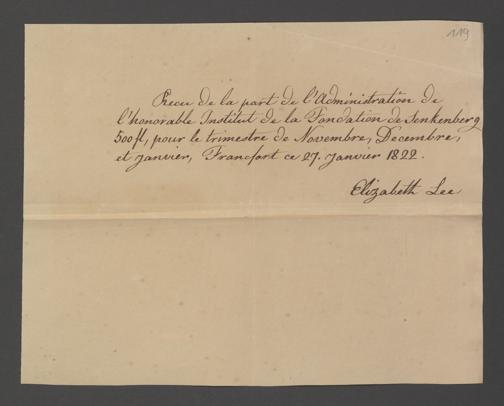 119
Recu de la part de l'Administration de
l'honorable Institut de la Fondation de Senkenberg
500 fl, pour le trimestre de Novembre, Decembre,
et janvier, Francfort ce 27. janvier 1822.
Elizabeth Lee